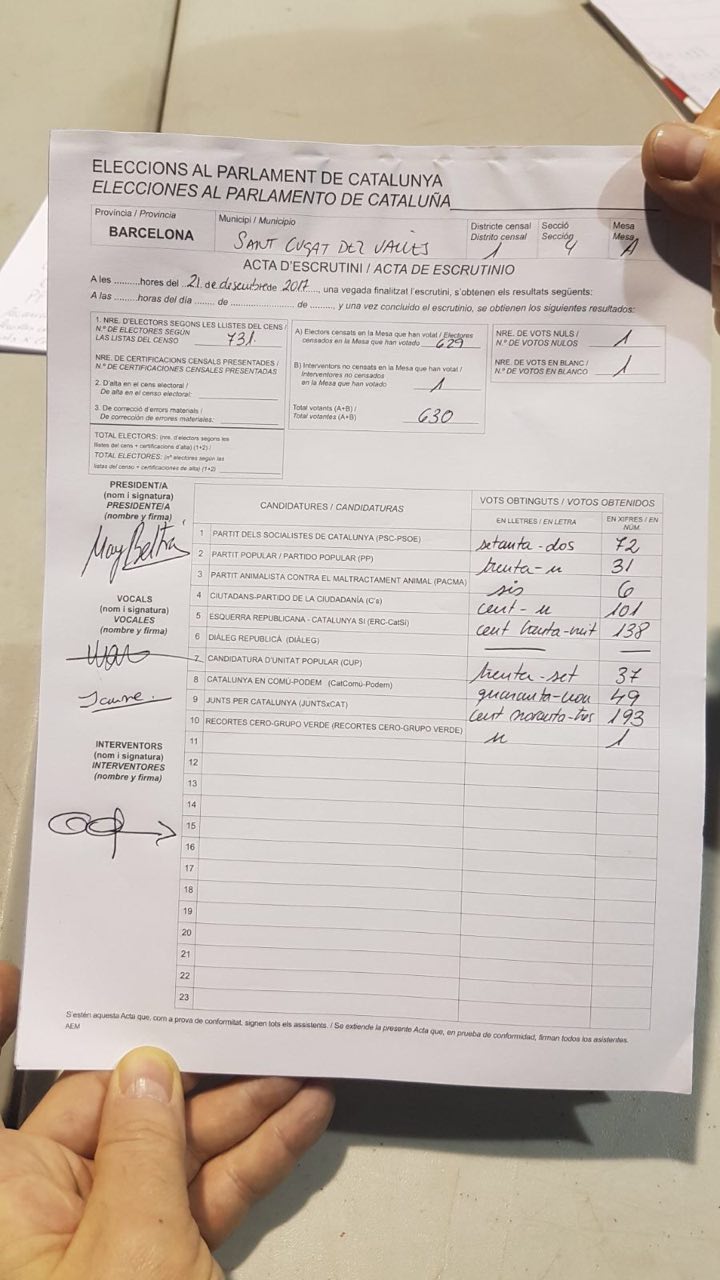 ELECCIONS AL PARLAMENT DE CATALUNYA
ELECCIONES AL PARLAMENTO DE CATALUÑA
Província / Provincia
BARCELONA
Municipi / Municipio
SANT CUGAT DEL VALLÈS
Districte censal
Distrito censal
1
Secció
Sección
4
Mesa
Mesa
A
ACTA D'ESCRUTINI / ACTA DE ESCRUTINIO
A les .........hores del 21 de desembre de 2017, una vegada finalitzat l'escrutini, s'obtenen els resultats següents:
A las .........horas del día ....... de ........................ de .......... y una vez concluido el escrutinio, se obtienen los siguientes resultados:
1. NRE. D'ELECTORS SEGONS LES LLISTES DEL CENS /
N.º DE ELECTORES SEGÚN
LAS LISTAS DEL CENSO 731
NRE. DE CERTIFICACIONS CENSALS PRESENTADES /
N.º DE CERTIFICACIONES CENSALES PRESENTADAS
2. D'alta en el cens electoral /
De alta en el censo electoral:
3. De correcció d'errors materials /
De corrección de errores materiales:
TOTAL ELECTORS: (nre. d'electors segons les
llistes del cens + certificacions d'alta) (1+2) /
TOTAL ELECTORES: (nº electores según las
listas del censo + certificaciones de alta) (1+2)
A) Electors censats en la Mesa que han votat / Electores
censados en la Mesa que han votado 629
B) Interventors no censats en la Mesa que han votat /
Interventores no censados
en la Mesa que han votado 1
Total votants (A+B) /
Total votantes (A+B) 630
NRE. DE VOTS NULS /
N.º DE VOTOS NULOS 1
NRE. DE VOTS EN BLANC /
N.º DE VOTOS EN BLANCO 1
PRESIDENT/A
(nom i signatura)
PRESIDENTE/A
(nombre y firma)
VOCALS
(nom i signatura)
VOCALES
(nombre y firma)
Jaume
INTERVENTORS
(nom i signatura)
INTERVENTORES
(nombre y firma)
CANDIDATURES / CANDIDATURAS
VOTS OBTINGUTS / VOTOS OBTENIDOS
EN LLETRES / EN LETRA
EN XIFRES / EN
NÚM.
1 PARTIT DELS SOCIALISTES DE CATALUNYA (PSC-PSOE) setanta-dos 72
2 PARTIT POPULAR / PARTIDO POPULAR (PP) trenta-u 31
3 PARTIT ANIMALISTA CONTRA EL MALTRACTAMENT ANIMAL (PACMA) sis 6
4 CIUTADANS-PARTIDO DE LA CIUDADANÍA (C's) cent-u 101
5 ESQUERRA REPUBLICANA - CATALUNYA SÍ (ERC-CatSí) cent trenta-vuit 138
6 DIÀLEG REPUBLICÀ (DIÀLEG)
7 CANDIDATURA D'UNITAT POPULAR (CUP) trenta-set 37
8 CATALUNYA EN COMÚ-PODEM (CatComú-Podem) quaranta-nou 49
9 JUNTS PER CATALUNYA (JUNTSxCAT) cent noranta-tres 193
10 RECORTES CERO-GRUPO VERDE (RECORTES CERO-GRUPO VERDE) u 1
11
12
13
14
15
16
17
18
19
20
21
22
23
S'estén aquesta Acta que, com a prova de conformitat, signen tots els assistents. / Se extiende la presente Acta que, en prueba de conformidad, firman todos los asistentes.
AEM